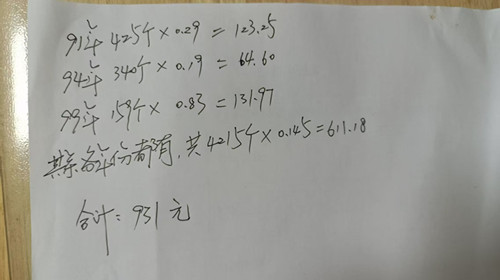 91年 425个×0.29=123.25
94年 340个×0.19=64.60
99年 159个×0.83=131.97
其余各年份都有,共4215个×0.145=611.18
合计:931元